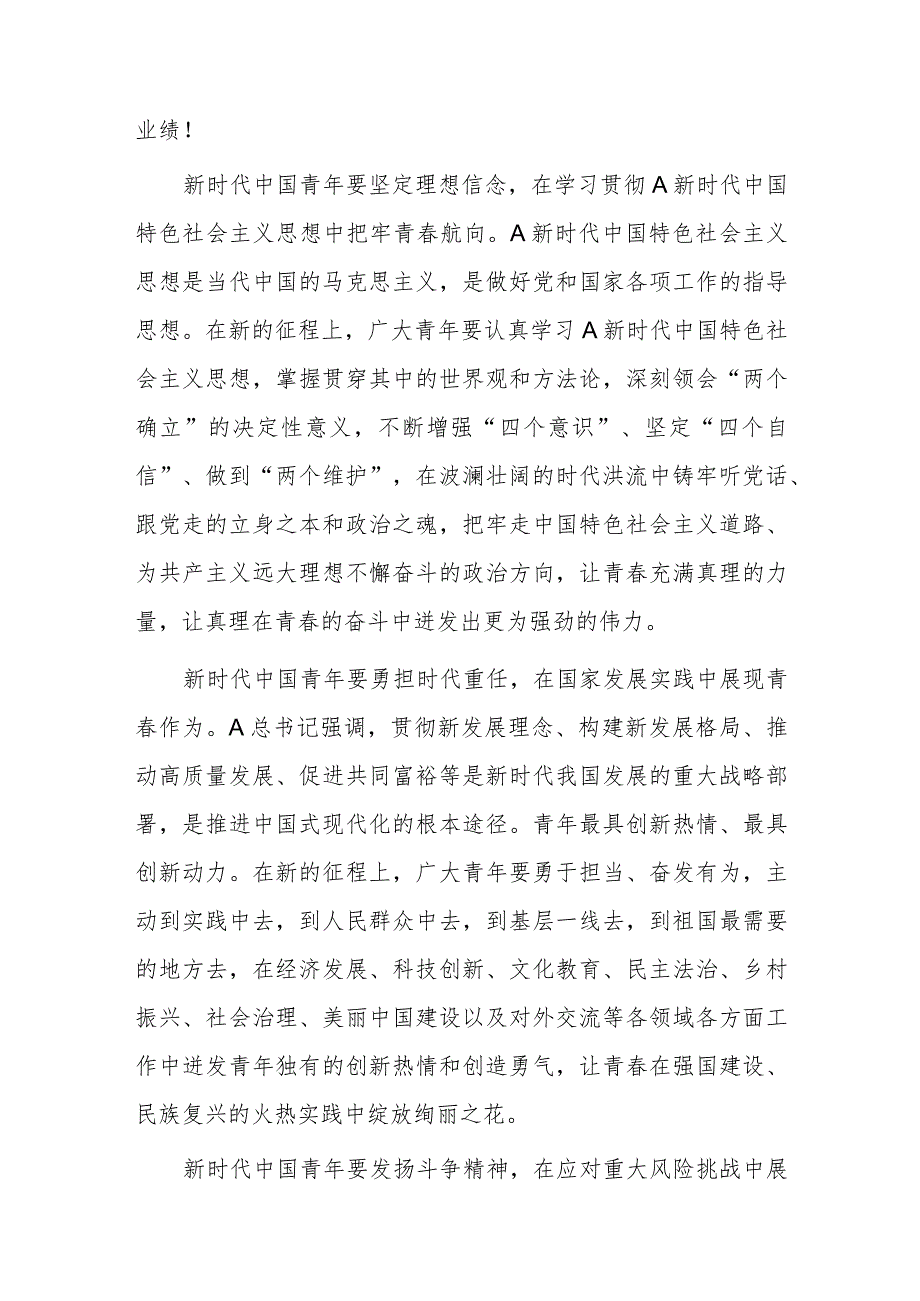 业绩！
新时代中国青年要坚定理想信念，在学习贯彻A新时代中国
特色社会主义思想中把牢青春航向。A新时代中国特色社会主义
思想是当代中国的马克思主义，是做好党和国家各项工作的指导
思想。在新的征程上，广大青年要认真学习A新时代中国特色社
会主义思想，掌握贯穿其中的世界观和方法论，深刻领会“两个
确立”的决定性意义，不断增强“四个意识”、坚定“四个自
信”、做到“两个维护”，在波澜壮阔的时代洪流中铸牢听党话、
跟党走的立身之本和政治之魂，把牢走中国特色社会主义道路、
为共产主义远大理想不懈奋斗的政治方向，让青春充满真理的力
量，让真理在青春的奋斗中迸发出更为强劲的伟力。
新时代中国青年要勇担时代重任，在国家发展实践中展现青
春作为。A总书记强调，贯彻新发展理念、构建新发展格局、推
动高质量发展、促进共同富裕等是新时代我国发展的重大战略部
署，是推进中国式现代化的根本途径。青年最具创新热情、最具
创新动力。在新的征程上，广大青年要勇于担当、奋发有为，主
动到实践中去，到人民群众中去，到基层一线去，到祖国最需要
的地方去，在经济发展、科技创新、文化教育、民主法治、乡村
振兴、社会治理、美丽中国建设以及对外交流等各领域各方面工
作中迸发青年独有的创新热情和创造勇气，让青春在强国建设、
民族复兴的火热实践中绽放绚丽之花。
新时代中国青年要发扬斗争精神，在应对重大风险挑战中展